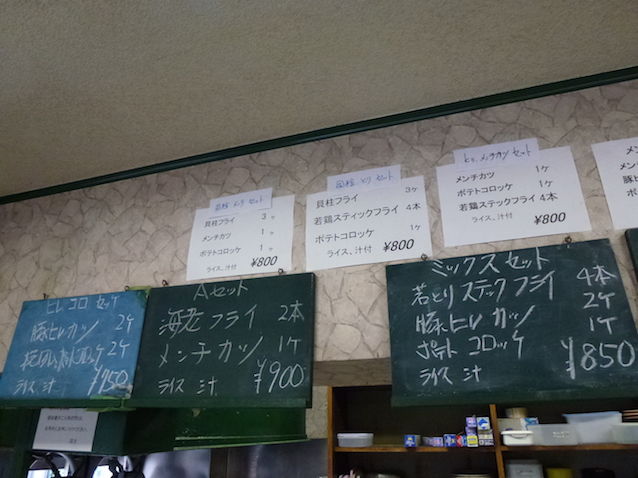 貝柱 メンチ セット
貝柱フライ 3ヶ
メンチカツ 1ヶ
ポテトコロッケ 1ヶ
ライス、汁付 ¥800
貝柱 とり セット
貝柱フライ 3ヶ
若鶏スティックフライ 4本
ポテトコロッケ 1ヶ
ライス、汁付 ¥800
とり、メンチカツ セット
メンチカツ 1ヶ
ポテトコロッケ 1ヶ
若鶏スティックフライ 4本
ライス、汁付 ¥800
ヒレコロセット
豚ヒレカツ 2ヶ
ライス 汁 ¥950
Aセット
海老フライ 2本
メンチカツ 1ヶ
ライス 汁 ¥900
ミックスセット
若とりステックフライ 4本
豚ヒレカツ 2ヶ
ポテトコロッケ 1ヶ
ライス 汁 ¥850